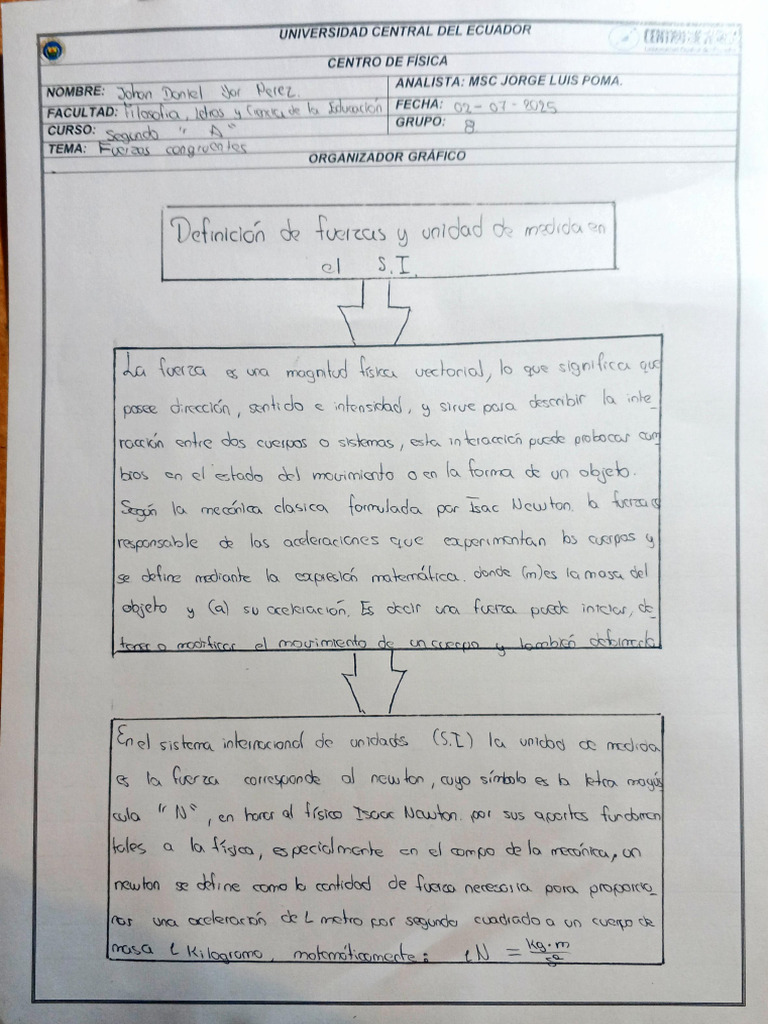 UNIVERSIDAD CENTRAL DEL ECUADOR
CENTRO DE FÍSICA
NOMBRE: Johan Daniel Perez.
ANALISTA: MSC JORGE LUIS POMA.
FACULTAD: Filosofia, letras y Ciencia de la Educación
FECHA: 02-07-2025
CURSO: Segundo "A"
GRUPO: 8
TEMA: Fuerzas congruentes
ORGANIZADOR GRÁFICO
Definición de fuerzas y unidad de medida en
el S.I.
La fuerza es una magnitud física vectorial, lo que significa que
posee dirección, sentido e intensidad, y sirve para describir la inte_
racción entre dos cuerpos o sistemas, esta interacción puede probocar cam
bios en el estado del movimiento o en la forma de un objeto.
Según la mecánica clasica formulada por Isac Newton. la fuerza es
responsable de las aceleraciones que experimentan los cuerpos y
se define mediante la expresión matemática. donde (m) es la masa del
objeto y (a) su aceleración. Es decir una fuerza puede iniciar, de_
tener o modificar el movimiento de un cuerpo y también deformarlo
En el sistema internacional de unidades (S.I) la unidad de medida
es la fuerza corresponde al newton, cuyo símbolo es la letra mayús
cula "N", en honor al físico Isaac Newton. por sus aportes fundamen
tales a la física, especialmente en el campo de la mecánica, un
newton se define como la cantidad de fuerza necesaria para proporcio_
nar una aceleración de 1 metro por segundo cuadrado a un cuerpo de
masa 1 Kilogramo, matemáticamente: 1N = kg·m/s²